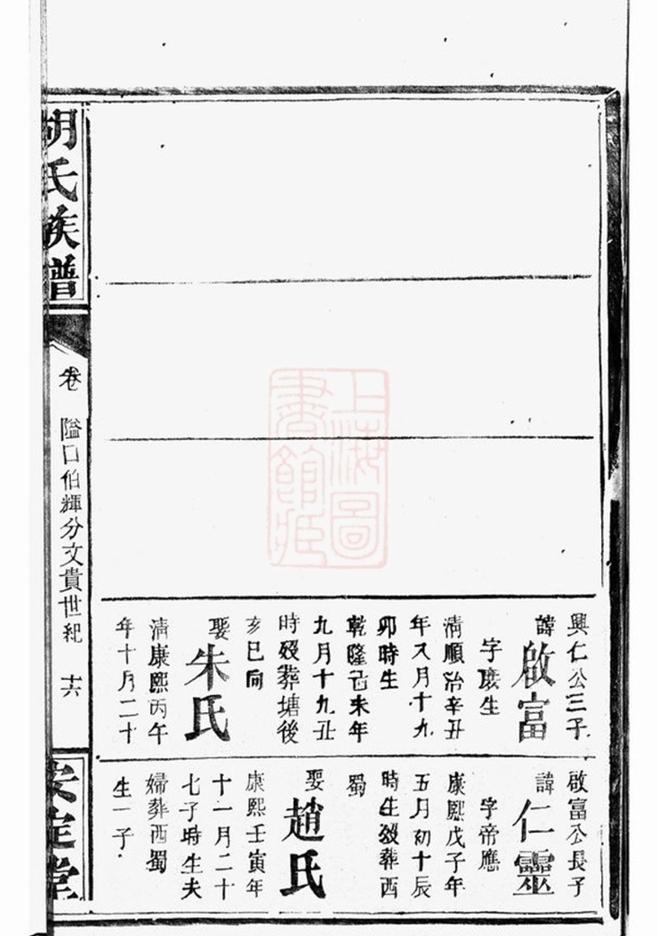 興仁公三子
諱啟富
字慶生
清順治辛丑
年又月十九
卯時生
乾隆己未年
九月十九丑
時歿葬塘後
亥巳向
娶朱氏
清康熙丙午
年十月二十
啟富公長子
諱仁靈
字帝應
康熙戊子年
五月初十辰
時生歿葬西
蜀
娶趙氏
康熙壬寅年
十一月二十
七子時生夫
婦葬西蜀
生一子
胡氏族譜
卷
隘口伯輝分文貴世紀
十六
安定堂
上海圖
書館藏